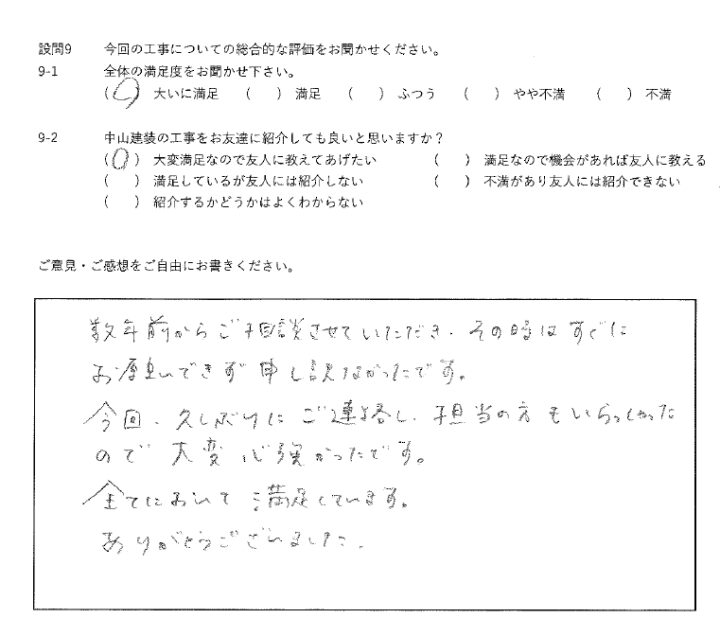 設問9 今回の工事についての総合的な評価をお聞かせください。
9-1 全体の満足度をお聞かせ下さい。
(○) 大いに満足 ( ) 満足 ( ) ふつう ( ) やや不満 ( ) 不満
9-2 中山建装の工事をお友達に紹介しても良いと思いますか？
(○) 大変満足なので友人に教えてあげたい ( ) 満足なので機会があれば友人に教える
( ) 満足しているが友人には紹介しない ( ) 不満があり友人には紹介できない
( ) 紹介するかどうかはよくわからない
ご意見・ご感想をご自由にお書きください。
数年前からご相談させていただき、その時はすぐに
お願いできず申し訳なかったです。
今回、久しぶりにご連絡し、担当の方もいらっしゃった
ので大変心強かったです。
全てにおいて満足しています。
ありがとうございました。